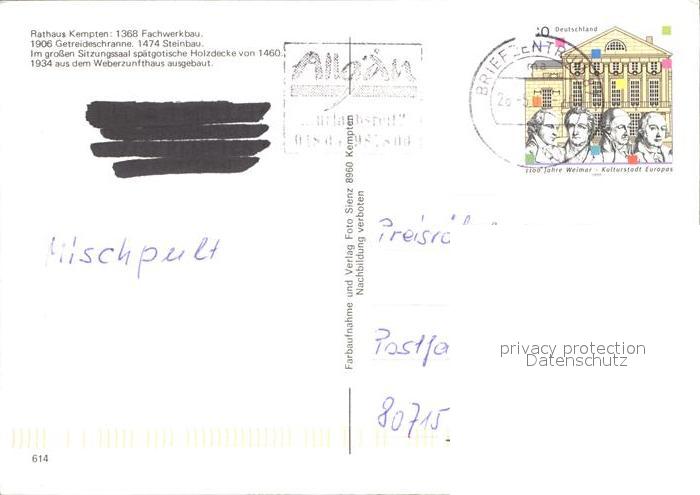 Rathaus Kempten: 1368 Fachwerkbau.
1906 Getreideschranne. 1474 Steinbau.
Im großen Sitzungssaal spätgotische Holzdecke von 1460.
1934 aus dem Weberzunfthaus ausgebaut.
Allgäu
...urlaubsreif?
Deutschland
BRIEFZENTR
1100 Jahre Weimar - Kulturstadt Europas
1999
Mischpult
Farbaufnahme und Verlag Foto Sienz 8960 Kempten
Nachbildung verboten
Preisrä
Postfa
80715
privacy protection
Datenschutz
614